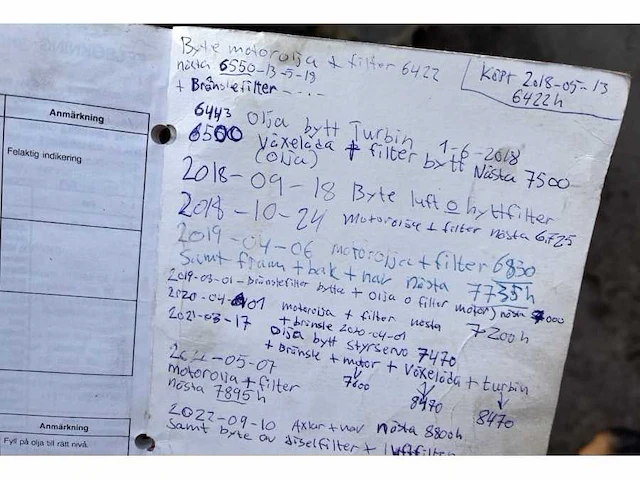 Anmärkning
Felaktig indikering
Anmärkning
Fyll på olja till rätt nivå.
Byte motorolja + filter 6422
nästa 6550-13-5-19
+ Bränslefilter - - - -
Köpt 2018-05-13
6422h
6443 olja bytt Turbin 1-6-2018
6500 Växelåda + filter bytt Nästa 7500
(olja)
2018-09-18 Byte luft o hyttfilter
2018-10-24 Motorolja + filter nästa 6725
2019-04-06 motorolja + filter 6830
Samt fram + bak + nav nästa 7735h
2019-03-01- Bränslefilter bytta + olja o filter motor) nästa 7000
2020-04-01 motorolja + filter nästa 7200h
+ bränsle 2020-04-01
2021-03-17 olja bytt styrservo 7470
+ Bränsle + motor + Växelåda + turbin
7600 8470 8470
2021-05-07
motorolja + filter
nästa 7895h
2022-09-10 Axlar + nav nästa 8800h
Samt byte av diselfilter + luftfilter